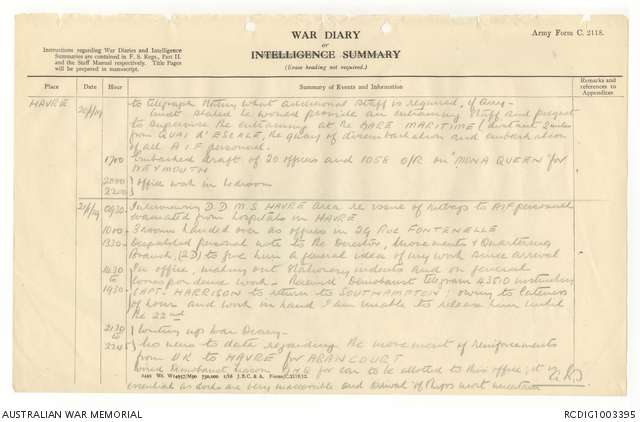 WAR DIARY
or
INTELLIGENCE SUMMARY
(Erase heading not required.)
Army Form C. 2118.
Instructions regarding War Diaries and Intelligence
Summaries are contained in F. S. Regs., Part II.
and the Staff Manual respectively. Title Pages
will be prepared in manuscript.
Place Date Hour Summary of Events and Information Remarks and references to Appendices
HAVRE 20/1/19 to telegraph stating what additional staff is required, if any.
stated he would provide an entraining staff and
to supervise the entraining at the GARE MARITIME (distant 2 miles
from QUAI d'ESCALE, the quay of disembarkation and embarkation
of all A.I.F. personnel.
1700 Embarked draft of 20 officers and 1058 O/R on "MONA QUEEN" for
WEYMOUTH
2000
2200 } office work in bedroom
21/1/19 0930 Interviewing D.D.M.S HAVRE area re issue of kitbags to AIF personnel
evacuated from hospitals in HAVRE
1000 3 rooms handed over as offices in 29 Rue FONTENELLE
1330 Despatched personal note to the Director, Movements & Quartering
Branch, (2D) to give him a general idea of my work since arrival
1630
to
1930 In office, making out stationery indents and on general
correspondence work. Received Demobaust telegram 43510 instructing
CAPT. HARRISON to return to SOUTHAMPTON; owing to lateness
of hour and work in hand I am unable to release him until
the 22nd
2130
to
2245 } Writing up War Diary.
No news to date regarding the movement of reinforcements
from UK to HAVRE for ABANCOURT
Wired Demobaust car to be allotted to this office; it is
essential as docks are very inaccessible and arrival of ships most uncertain
2449 Wt. W14957/M90 750,000 1/16 J.B.C. & A. Forms/C.2118/12.
AUSTRALIAN WAR MEMORIAL
RCDIG1003395